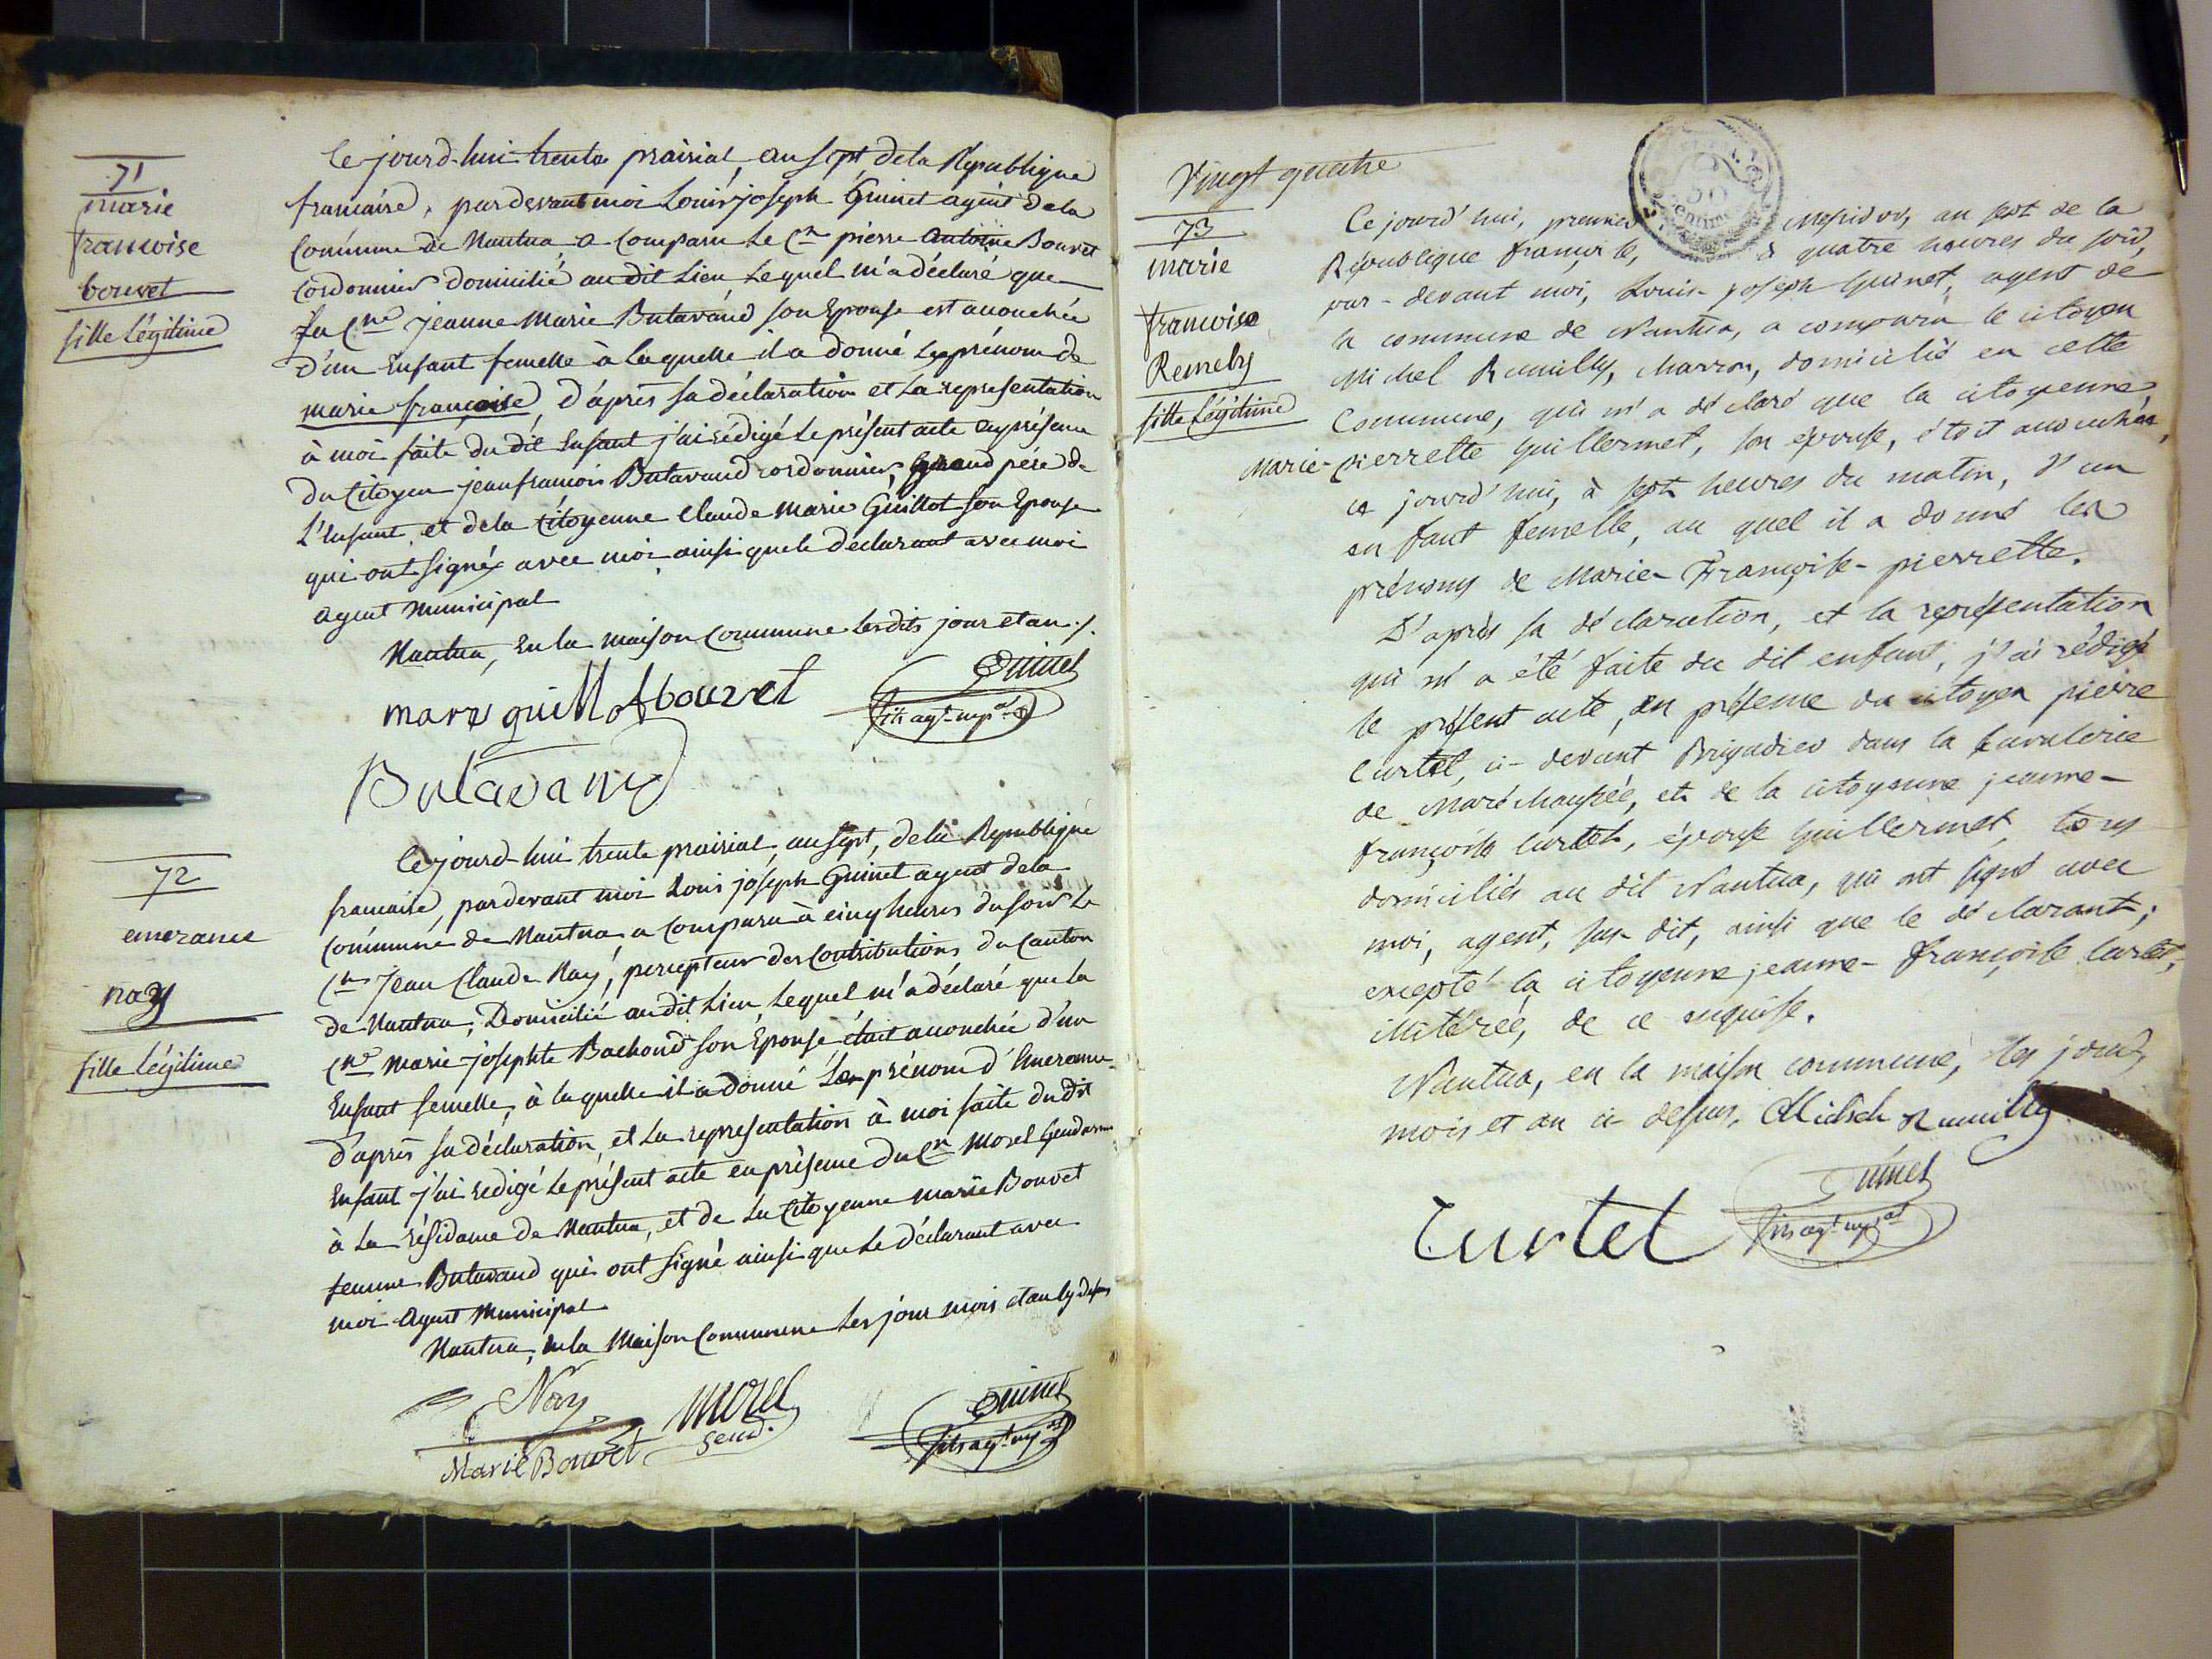 71
marie
francoise
bouvet
fille Légitime
Ce jourd-hui trente prairial, an sept de la Republique
francaise, pardevant moi Louis joseph Guinet agent de la
Commune de Nantua, a comparu Le Cen pierre Antoine Bouvet
Cordonnier domicilié au dit Lieu Lequel m'a déclaré que
La Cne Jeanne Marie Butavand son Epouse est accouchée
d'un Enfant femelle à laquelle il a donné Les prénom de
marie francoise, d'après sa déclaration et La representation
à moi faite du dit Enfant j'ai rédigé Le présent acte en présence
du Citoyen jean francois Butavand cordonnier, grand pére de
L'Enfant, et de la Citoyenne Claude Marie Guillot son Epouse
qui ont signé avec moi ainsi que le déclarant avec moi
Agent Municipal
Nantua, En la maison Commune Lesdits jour et an ./.
mary guillot bouvet Guinet
fils agt mpal
Butavand
72
emerance
nay
fille Légitime
Ce jourd-hui trente prairial, an sept, de la Republique
francaise, pardevant moi Louis joseph Guinet agent de la
Commune de Nantua a comparu à cinq heures du soir Le
Cen Jean Claude Nay, percepteur des Contributions du Canton
de Nantua, Domicilié au dit Lieu, Lequel m'a déclaré que La
Cne Marie josephte Bachoud son Epouse était accouchée d'un
Enfant femelle, à laquelle il a donné Les prénom d'Emerance
d'après sa déclaration, et La representation à moi faite du dit
Enfant j'ai redigé Le présent acte en présence du Cen Morel Gendarme
à La résidance de Nantua, et de La Citoyenne Marie Bouvet
femme Butavand qui ont signé ainsi que Le déclarant avec
moi Agent Municipal
Nantua, En la Maison Commune Les jour mois et an cy dessus
Nay Morel Guinet
Marie Bouvet gend. fils agt mpal
Vingt quatre
73
marie
francoise
Remely
fille Légitime
Ce jourd'hui, premier Messidor, an sept de la
République françoise, à quatre heures du soir,
par-devant moi, Louis-joseph Guinet, agent de
la commune de Nantua, a comparu le citoyen
Michel Rumilly, Marron, domicilié en cette
Commune, qui m'a déclaré que la citoyenne
Marie-pierrette Guillermet, son épouse, étoit accouchée,
ce jourd'hui, à sept heures du matin, d'un
enfant femelle, au quel il a donné les
prénoms de Marie-Françoise-pierrette.
D'après sa déclaration, et la représentation
qui m'a été faite du dit enfant, j'ai rédigé
le présent acte, en présence du citoyen pierre
Curtet, ci-devant Brigadier dans la Cavalerie
de Maréchaussée, et de la citoyenne jeanne-
françoise Curtet, épouse Guillermet, tous
domiciliés au dit Nantua, qui ont signé avec
moi, agent, sus-dit, ainsi que le déclarant;
excepté la citoyenne jeanne-françoise Curtet,
illitérée, de ce enquise.
Nantua, en la maison commune, les jour,
mois et an ci-dessus, Michel Rumilly
Curtet Guinet
fils agt mpal